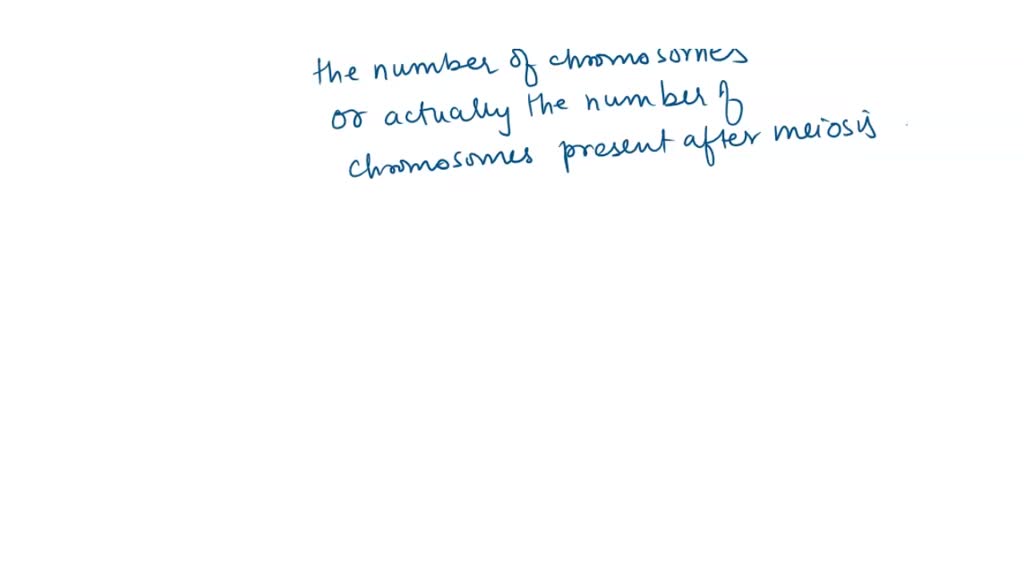 the number of chromosomes
or actually the number of
chromosomes present after meiosis